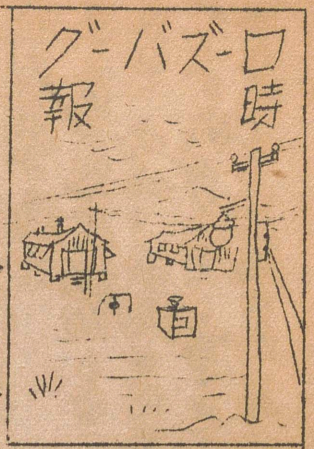 ローズバーグ
時報